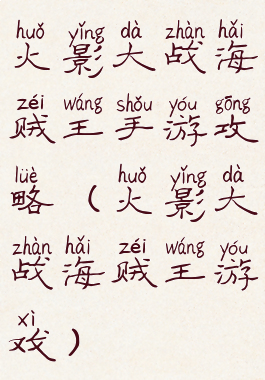 huǒ yǐng dà zhàn hǎi
火影大战海
zéi wáng shǒu yóu gōng
贼王手游攻
lüè huǒ yǐng dà
略（火影大
zhàn hǎi zéi wáng yóu
战海贼王游
xì
戏）